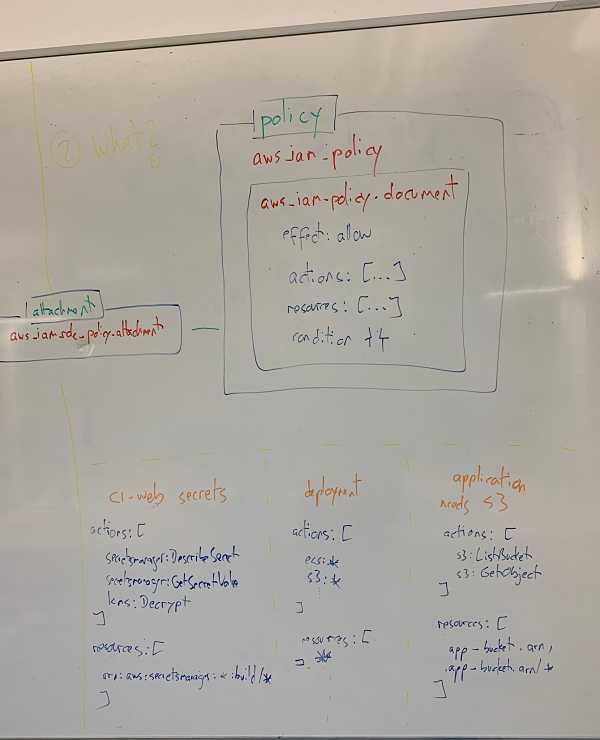 ② What?
policy
aws_iam_policy
aws_iam_policy_document
effect: allow
actions: [...]
resources: [...]
condition {}
attachment
aws_iam_role_policy_attachment
CI-web secrets
actions: [
secretsmanager:DescribeSecret
secretsmanager:GetSecretValue
kms:Decrypt
]
resources: [
arn:aws:secretsmanager:*:build/*
]
deployment
actions: [
ecs:*
s3:*
]
resources: [
*
]
application
reads S3
actions: [
s3:ListBucket
s3:GetObject
]
resources: [
app-bucket.arn,
app-bucket.arn/*
]